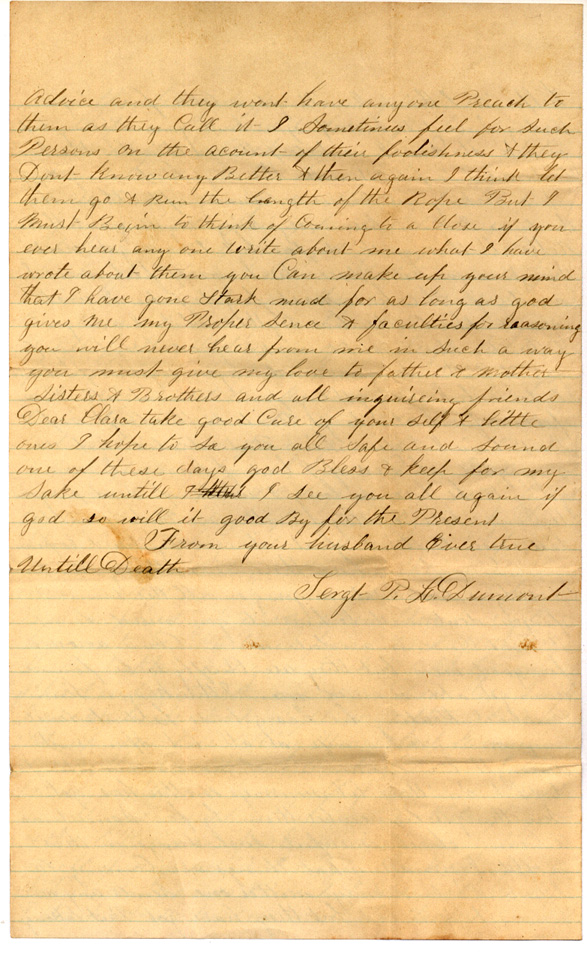 Advice and they wont have anyone Preach to
them as they Call it I Sometimes feel for Such
Persons on the acount of their foolishness & they
Dont Know any Better & then again I think let
them go & Run the length of the Rope But I
Must Begin to think of Coming to a Close if you
ever hear any one write about me what I have
wrote about them you Can make up your mind
that I have gone Stark mad for as long as god
gives me my Proper Sence & faculties for reasoning
you will never hear from me in Such a way
you must give my love to father & Mother
Sisters & Brothers and all inquireing friends
Dear Clara take good Care of your Self & little
ones I hope to Se you all Safe and Sound
one of these days god Bless & keep for my
Sake untill I see you all again if
god so will it good By for the Present
From your husband Ever true
Untill Death
Sergt P. H. Dumont